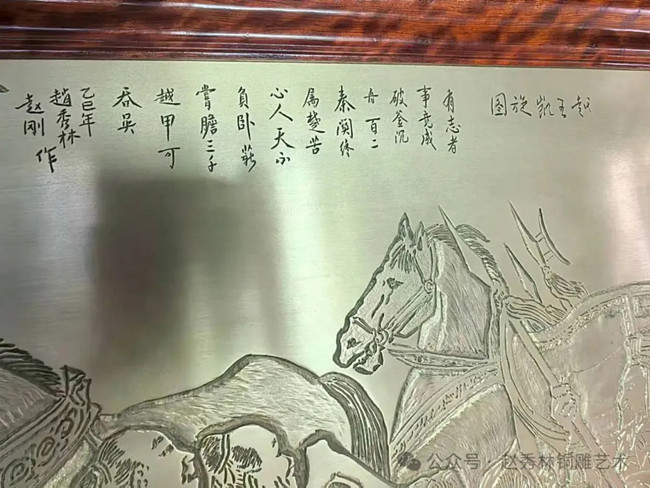 越王凯旋图
有志者
事竟成
破釜沉
舟百二
秦関终
属楚苦
心人天不
負卧薪
嘗膽三千
越甲可
吞吴
乙巳年
趙秀林
赵刚作
公众号·赵秀林铜雕艺术